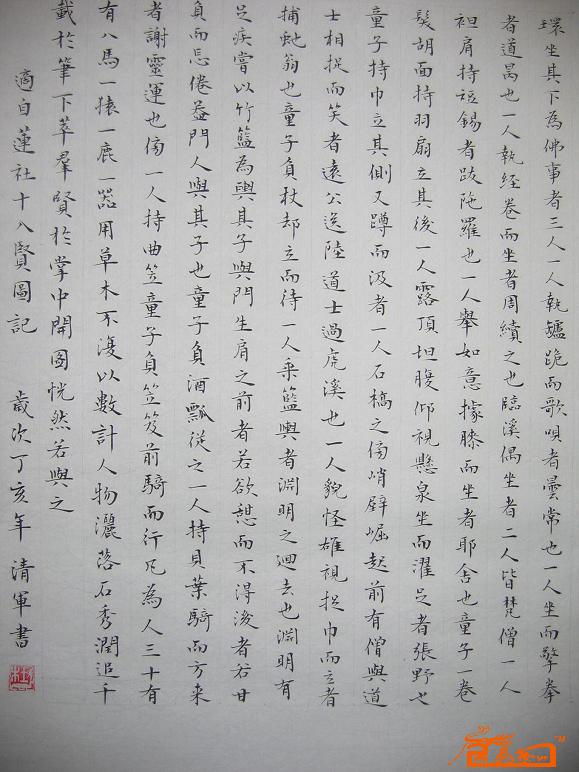 環坐其下為佛事者三人一人執爐跪而歌唄者曇常也一人坐而擎拳
者道昺也一人執經卷而坐者周續之也臨溪偶坐者二人皆梵僧一人
袒肩持短錫者跋陁羅也一人舉如意據膝而坐者耶舍也童子一卷
髮胡面持羽扇立其後一人露頂坦腹仰視懸泉坐而濯足者張野也
童子持巾立其側又蹲而汲者一人石橋之傍峭壁崛起前有僧與道
士相捉而笑者遠公送陸道士過虎溪也一人貌怪雄視捉巾而立者
捕虵翁也童子負杖却立而待一人乘籃輿者淵明之廻去也淵明有
足疾嘗以竹籃為輿其子與門生肩之前者若欲憩而不得後者若甘
負而忘倦蓋門人與其子也童子負酒瓢從之一人持貝葉騎而方来
者謝靈運也傍一人持曲笠童子負笠笈前騎而行凡為人三十有
有八馬一猿一鹿一器用草木不復以數計人物灑落石秀潤追千
載於筆下萃羣賢於掌中開圖恍然若與之
適白蓮社十八賢圖記 歲次丁亥年 清軍書